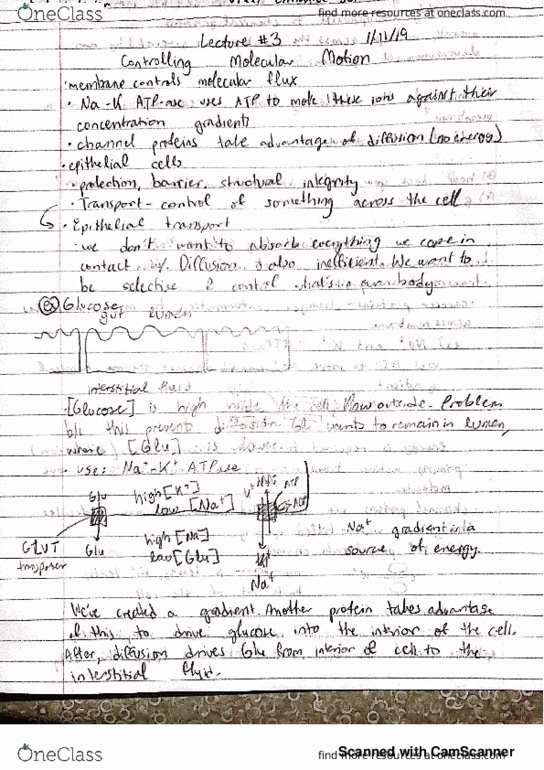 OneClass
find more resources at oneclass.com
Lecture #3 1/11/19
Controlling Molecular Motion
· membrane controls molecular flux
· Na-K ATP-ase uses ATP to move these ions against their
concentration gradients
· channel proteins take advantage of diffusion (no energy)
· epithelial cells
· protection, barrier, structural integrity
· Transport - control of something across the cell
· Epithelial transport
· we don't want to absorb everything we come in
contact w/. Diffusion is also inefficient. We want to
be selective & control what's in our body
ex Glucose
gut lumen
interstitial fluid
· [Glucose] is high inside the cell flow outside. Problem
b/c this prevents diffusion Glu wants to remain in lumen,
where [Glu] is lower
· use: Na⁺-K⁺ ATPase
Glu high [K⁺] ATP
low [Na⁺] ADP
GLUT high [Na] Na⁺ gradient is a
Glu low [Glu] source of energy.
Na⁺
We've created a gradient. Another protein takes advantage
of this to drive glucose into the interior of the cell.
After, diffusion drives Glu from interior of cell to the
interstitial fluid.
OneClass
find more resources at oneclass.com
Scanned with CamScanner